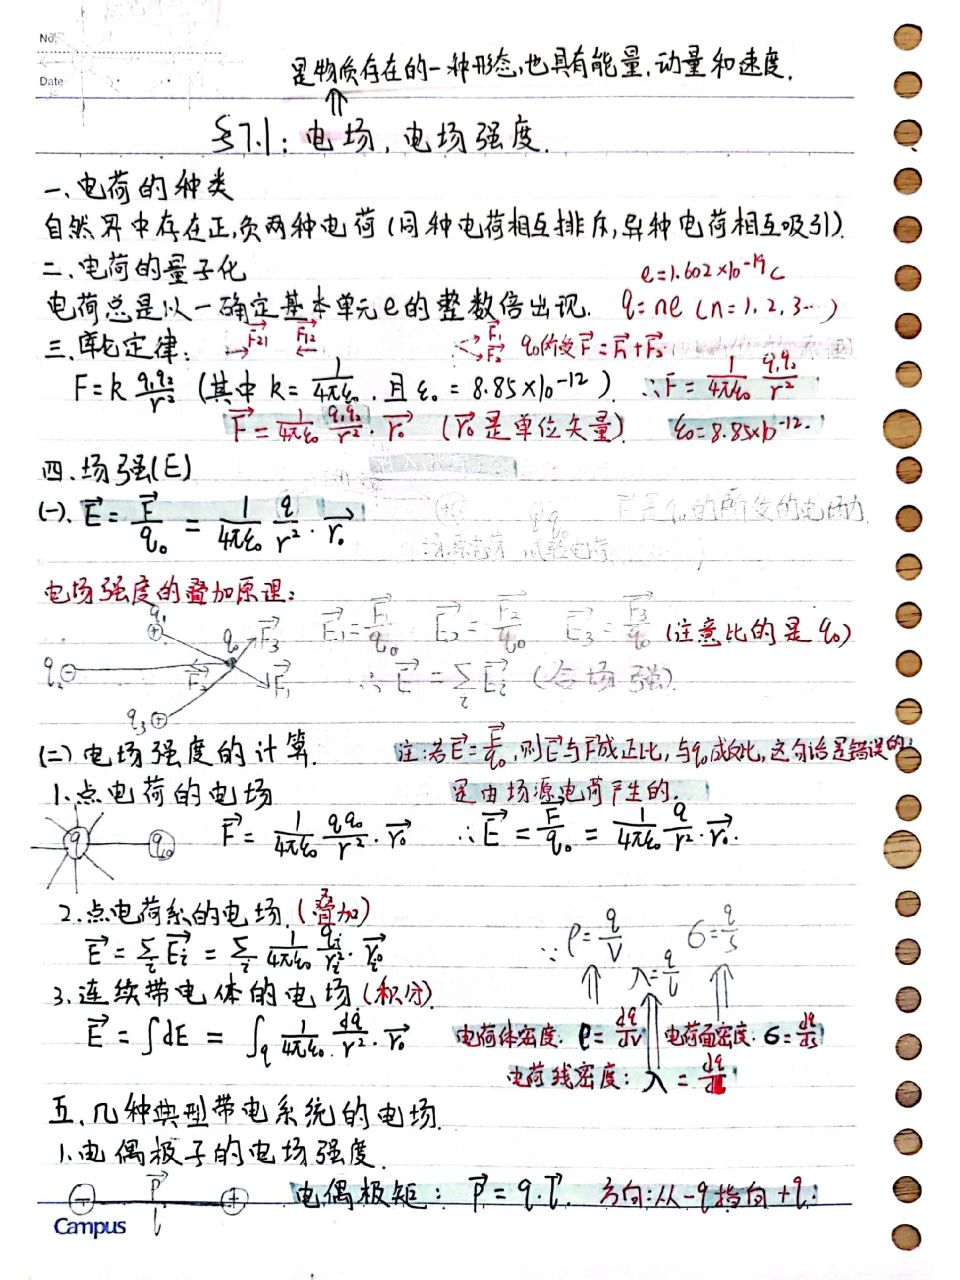 No.
Date
是物质存在的一种形态,也具有能量,动量和速度.
⇑
§7.1: 电场, 电场强度.
一、电荷的种类
自然界中存在正,负两种电荷 (同种电荷相互排斥,异种电荷相互吸引).
二、电荷的量子化 e=1.602×10⁻¹⁹C
电荷总是以一确定基本单元e的整数倍出现. q=ne (n=1, 2, 3…)
三、库仑定律: F⃗21 F⃗12 F⃗1 F⃗2 q₀所受F⃗=F⃗1+F⃗2
F=k q₁q₂/r² (其中 k=1/4πε₀, 且 ε₀=8.85×10⁻¹²) ∴F=1/4πε₀ q₁q₂/r²
F⃗=1/4πε₀ q₁q₂/r²·r⃗₀ (r⃗₀是单位矢量) ε₀=8.85×10⁻¹².
四.场强(E)
(一). E⃗=F⃗/q₀=1/4πε₀ q/r²·r⃗₀ F是q₀的所受的电场力
场源电荷 试验电荷
电场强度的叠加原理:
q₁ q₀ F⃗3 E⃗1=F⃗1/q₀ E⃗2=F⃗2/q₀ E⃗3=F⃗3/q₀ (注意比的是q₀)
q₂ F⃗2 F⃗1 ∴E⃗=∑ᵢE⃗ᵢ (合场强).
q₃
(二)电场强度的计算. 注:若E⃗=F⃗/q₀,则E⃗与F⃗成正比,与q₀成反比,这句话是错误的;
1.点电荷的电场 是由场源电荷产生的.
q q₀ F⃗=1/4πε₀ qq₀/r²·r⃗₀ ∴E⃗=F⃗/q₀=1/4πε₀ q/r²·r⃗₀.
2.点电荷系的电场.(叠加)
E⃗=∑ᵢE⃗ᵢ=∑ᵢ 1/4πε₀ qᵢ/rᵢ²·r⃗ᵢ₀ ∵ρ=q/V λ=q/l σ=q/s
3.连续带电体的电场(积分)
E⃗=∫dE=∫q 1/4πε₀·dq/r²·r⃗₀ 电荷体密度: ρ=dq/dv 电荷面密度: σ=dq/ds
电荷线密度: λ=dq/dl
五.几种典型带电系统的电场.
1.电偶极子的电场强度.
P⃗ l 电偶极矩: P⃗=q·l⃗. 方向:从-q指向+q.
Campus